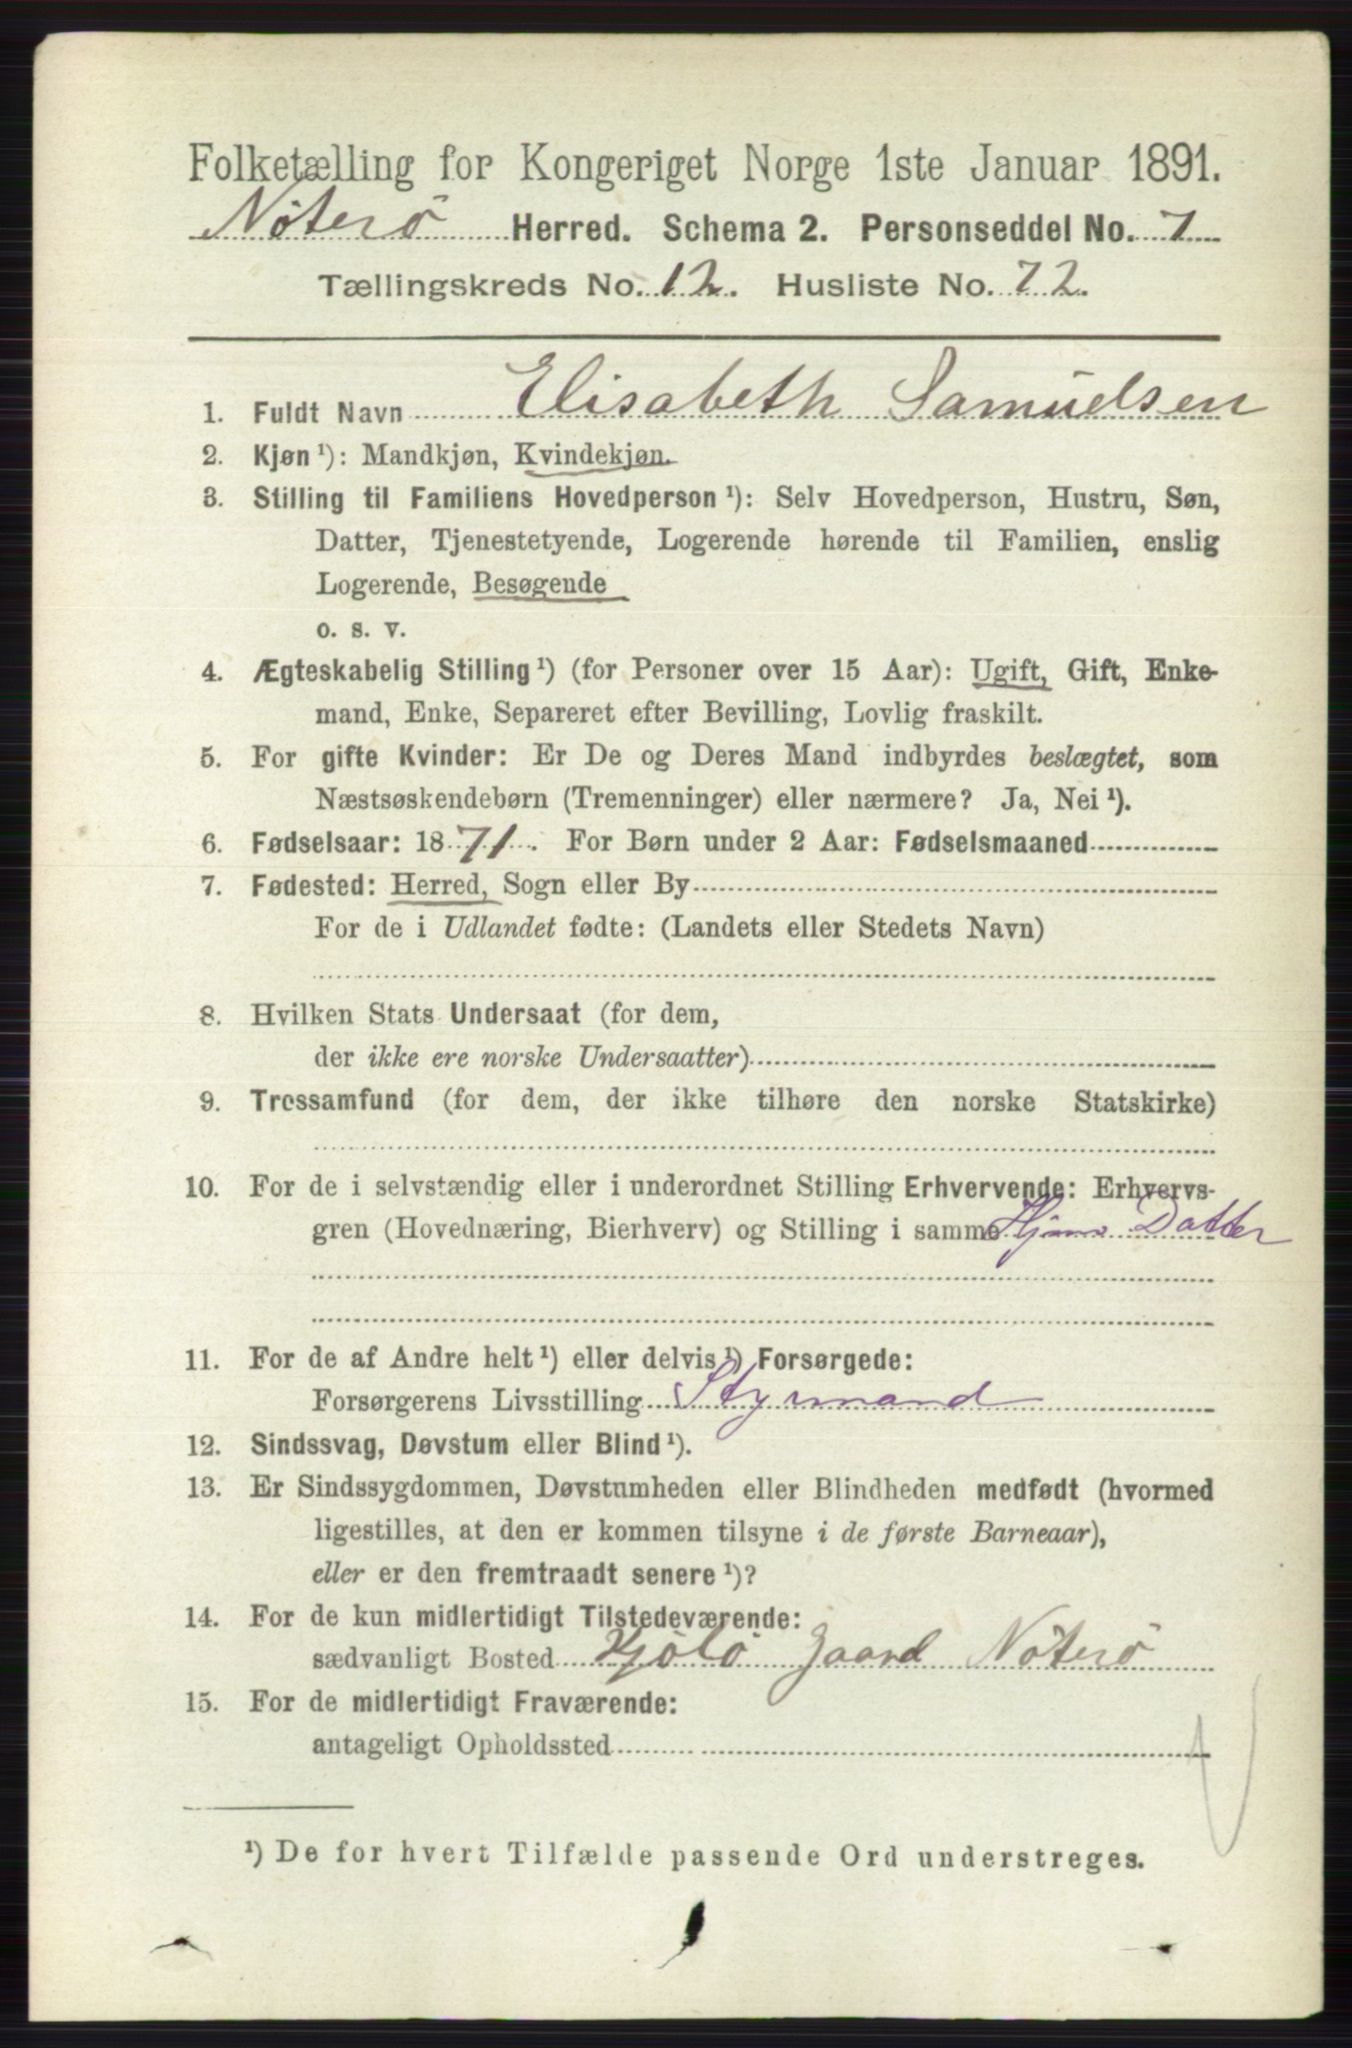 Folketælling for Kongeriget Norge 1ste Januar 1891.
Nøterö Herred. Schema 2. Personseddel No. 7
Tællingskreds No. 12. Husliste No. 72.
1. Fuldt Navn Elisabeth Samuelsen
2. Kjøn ¹): Mandkjøn, Kvindekjøn.
3. Stilling til Familiens Hovedperson ¹): Selv Hovedperson, Hustru, Søn,
Datter, Tjenestetyende, Logerende hørende til Familien, enslig
Logerende, Besøgende
o. s. v.
4. Ægteskabelig Stilling ¹) (for Personer over 15 Aar): Ugift, Gift, Enke-
mand, Enke, Separeret efter Bevilling, Lovlig fraskilt.
5. For gifte Kvinder: Er De og Deres Mand indbyrdes beslægtet, som
Næstsøskendebørn (Tremenninger) eller nærmere? Ja, Nei ¹).
6. Fødselsaar: 1871. For Børn under 2 Aar: Fødselsmaaned
7. Fødested: Herred, Sogn eller By
For de i Udlandet fødte: (Landets eller Stedets Navn)
8. Hvilken Stats Undersaat (for dem,
der ikke ere norske Undersaatter)
9. Trossamfund (for dem, der ikke tilhøre den norske Statskirke)
10. For de i selvstændig eller i underordnet Stilling Erhvervende: Erhvervs-
gren (Hovednæring, Bierhverv) og Stilling i samme Datter
11. For de af Andre helt ¹) eller delvis ¹) Forsørgede:
Forsørgerens Livsstilling Styrmand
12. Sindssvag, Døvstum eller Blind ¹).
13. Er Sindssygdommen, Døvstumheden eller Blindheden medfødt (hvormed
ligestilles, at den er kommen tilsyne i de første Barneaar),
eller er den fremtraadt senere ¹)?
14. For de kun midlertidigt Tilstedeværende:
sædvanligt Bosted Kjölö Gaard Nöterö
15. For de midlertidigt Fraværende:
antageligt Opholdssted
¹) De for hvert Tilfælde passende Ord understreges.